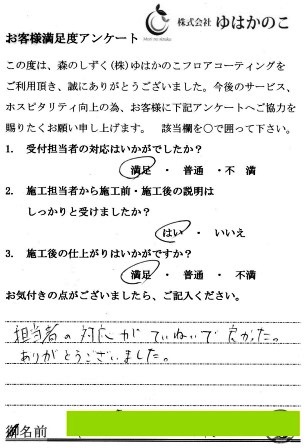 株式会社 ゆはかのこ
Mori no shizuku
お客様満足度アンケート
この度は、森のしずく(株)ゆはかのこフロアコーティングを
ご利用頂き、誠にありがとうございました。今後のサービス、
ホスピタリティ向上の為、お客様に下記アンケートへご協力を
賜りたくお願い申し上げます。 該当欄を○で囲って下さい。
1. 受付担当者の対応はいかがでしたか?
満足 ・ 普通 ・不 満
2. 施工担当者から施工前・施工後の説明は
しっかりと受けましたか?
はい ・ いいえ
3. 施工後の仕上がりはいかがですか?
満足 ・ 普通 ・ 不満
お気付きの点がございましたら、ご記入ください。
担当者の対応がていねいで良かった。
ありがとうございました。
御名前